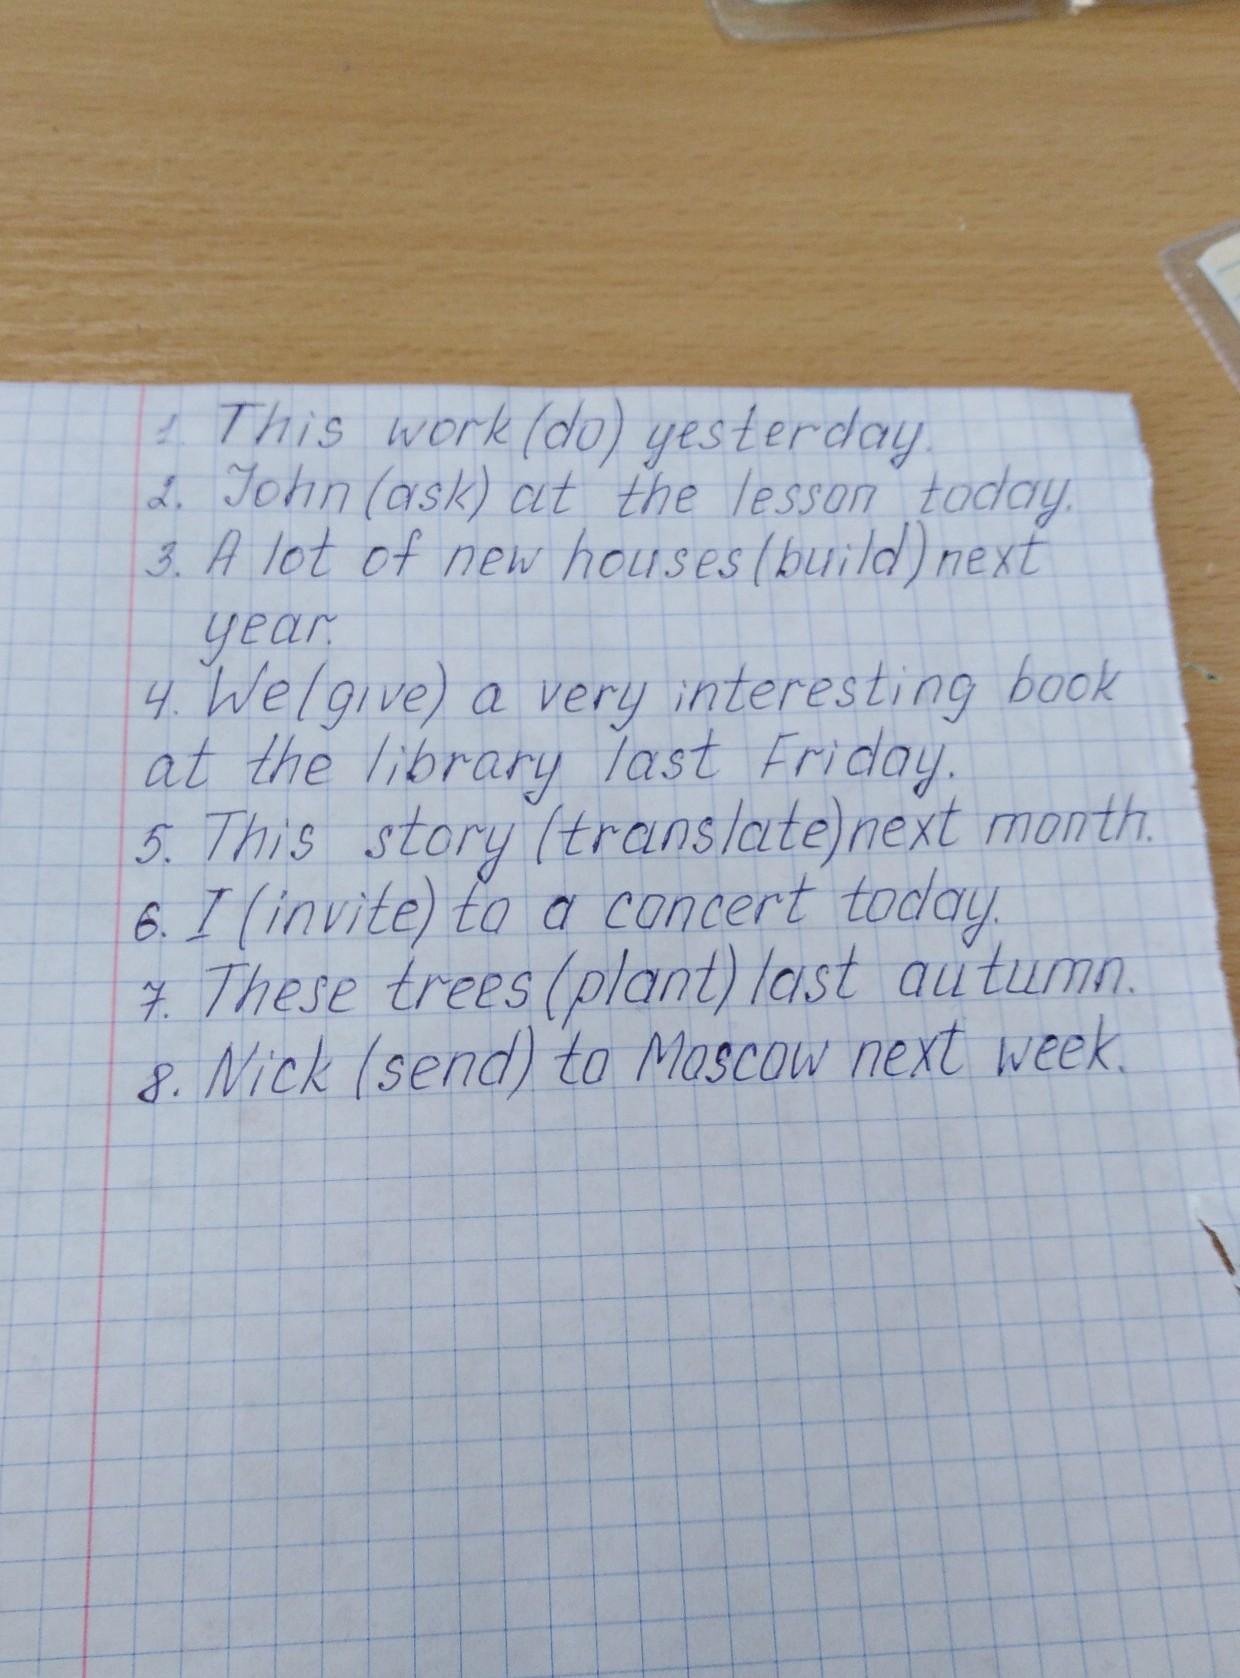 1. This work (do) yesterday.
2. John (ask) at the lesson today.
3. A lot of new houses (build) next
year.
4. We (give) a very interesting book
at the library last Friday.
5. This story (translate) next month.
6. I (invite) to a concert today.
7. These trees (plant) last autumn.
8. Nick (send) to Moscow next week.